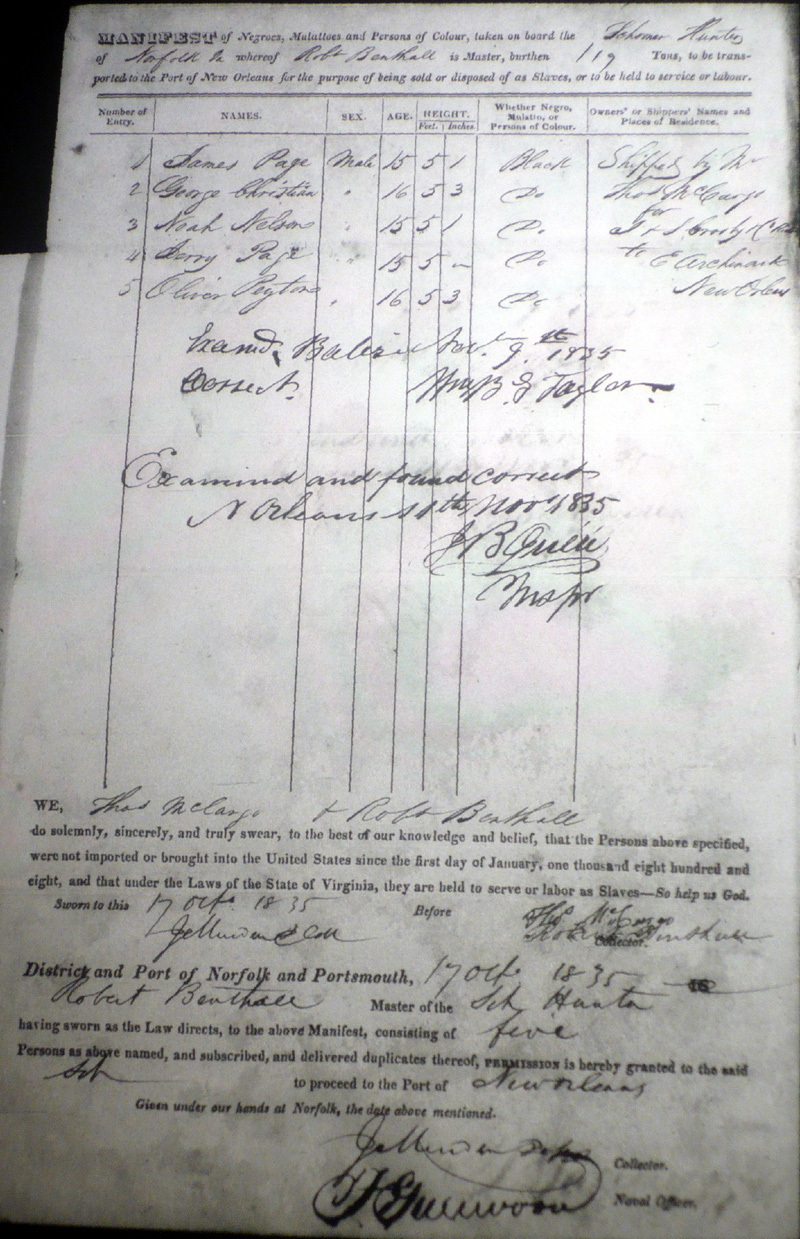 MANIFEST of Negroes, Mulattoes and Persons of Colour, taken on board the Schooner Hunter
of Norfolk Va whereof Robt Benthall is Master, burthen 119 Tons, to be trans-
ported to the Port of New Orleans for the purpose of being sold or disposed of as Slaves, or to be held to service or labour.
Number of Entry. NAMES. SEX. AGE. HEIGHT. Feet. Inches Whether Negro, Mulatto, or Persons of Colour. Owners' or Shippers' Names and Places of Residence.
1 James Page Male 15 5 1 Black Shipped by Mr
2 George Christian " 16 5 3 Do Thos McCargo
3 Noah Nelson " 15 5 1 Do for
4 Jerry Page " 15 5 " Do to E Archinard
5 Oliver Peyton " 16 5 3 Do New Orleans
Examd. Balize Nov. 9th 1835
Correct. Wm B G Taylor
Examind and found correct
N Orleans 11th Nov 1835
Inspr
WE, Thos McCargo & Robt Benthall
do solemnly, sincerely, and truly swear, to the best of our knowledge and belief, that the Persons above specified,
were not imported or brought into the United States since the first day of January, one thousand eight hundred and
eight, and that under the Laws of the State of Virginia, they are held to serve or labor as Slaves—So help us God.
Sworn to this 17 Octr 1835 Before Thos McCargo
Robert Benthall
Collector.
District and Port of Norfolk and Portsmouth, 17 Octr 1835
Robert Benthall Master of the Sch Hunter
having sworn as the Law directs, to the above Manifest, consisting of five
Persons as above named, and subscribed, and delivered duplicates thereof, PERMISSION is hereby granted to the said
Sch to proceed to the Port of New Orleans
Given under our hands at Norfolk, the date above mentioned.
Collector.
Naval Officer.